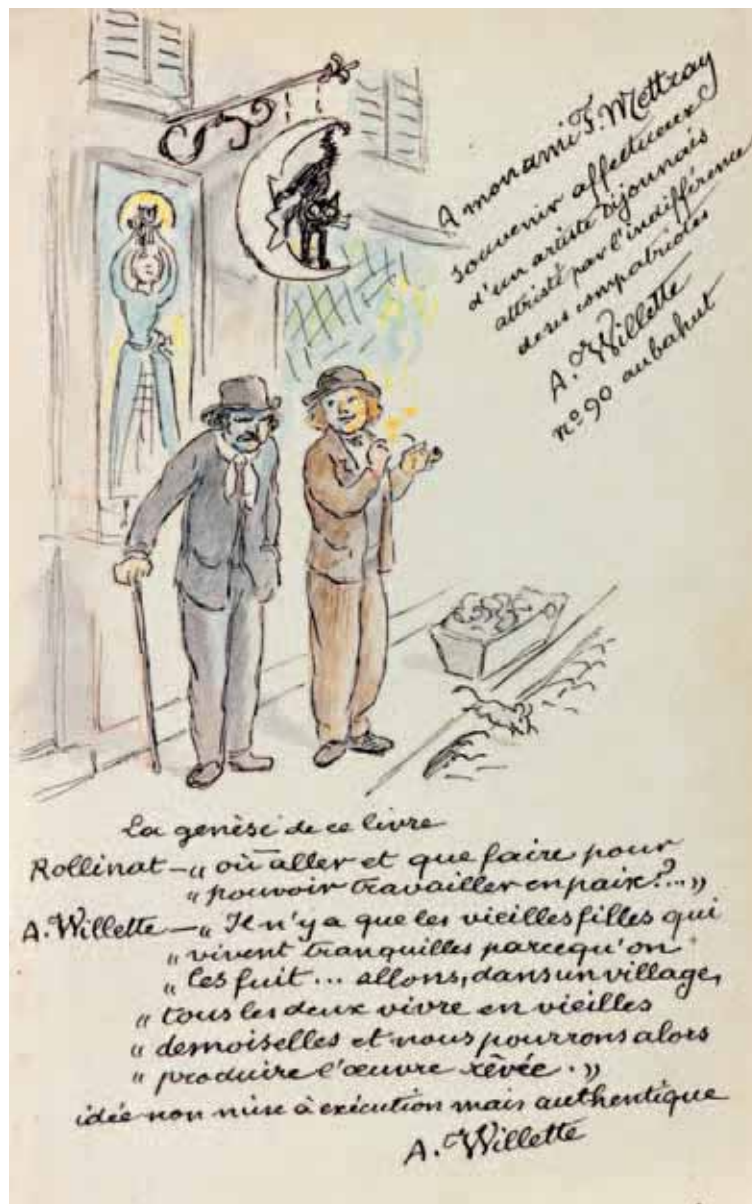 A mon ami F. Mettray
souvenir affectueux
d'un artiste Dijonnais
attristé par l'indifférence
de ses compatriotes
A. Willette
nº 90 au bahut
La genèse de ce livre
Rollinat — „ où aller et que faire pour
„ pouvoir travailler en paix ?... „
A. Willette — „ Il n'y a que les vieilles filles qui
„ vivent tranquilles parcequ'on
„ les fuit... allons, dans un village,
„ tous les deux vivre en vieilles
„ demoiselles et nous pourrons alors
„ produire l'œuvre rêvée. „
idée non mise à exécution mais authentique
A. Willette